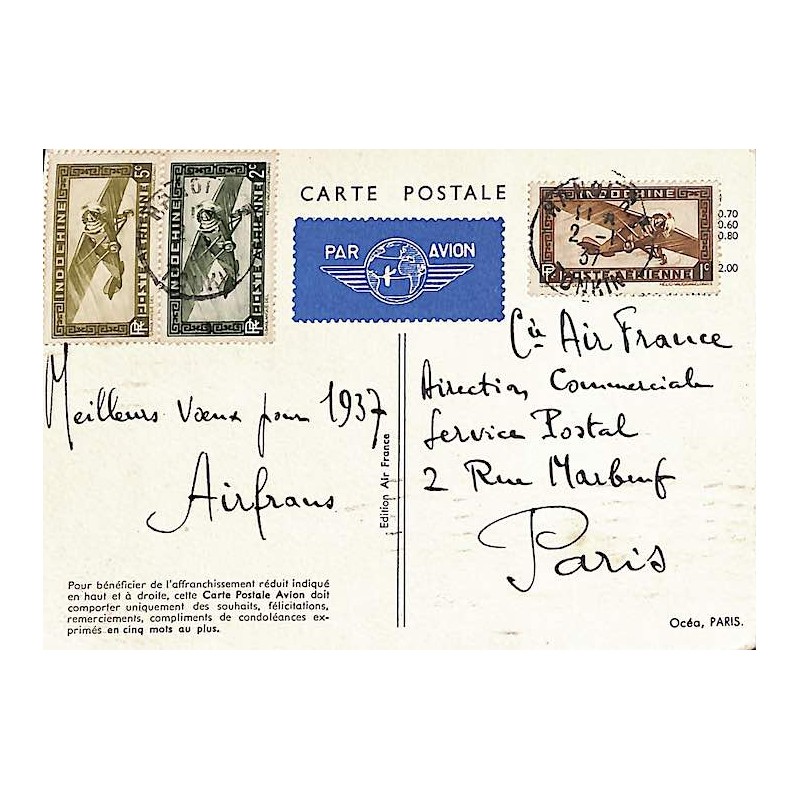 INDOCHINE
5c
POSTE AÉRIENNE
RF
INDOCHINE
2c
POSTE AÉRIENNE
RF
CARTE POSTALE
PAR AVION
INDOCHINE
POSTE AÉRIENNE
RF
1c
HANOI
2-1
37
TONKIN
0.70
0.60
0.80
2.00
Meilleurs Vœux pour 1937
Airfrans
Edition Air France
Cie Air France
Direction Commerciale
Service Postal
2 Rue Marbeuf
Paris
Pour bénéficier de l'affranchissement réduit indiqué
en haut et à droite, cette Carte Postale Avion doit
comporter uniquement des souhaits, félicitations,
remerciements, compliments de condoléances ex-
primés en cinq mots au plus.
Océa, PARIS.